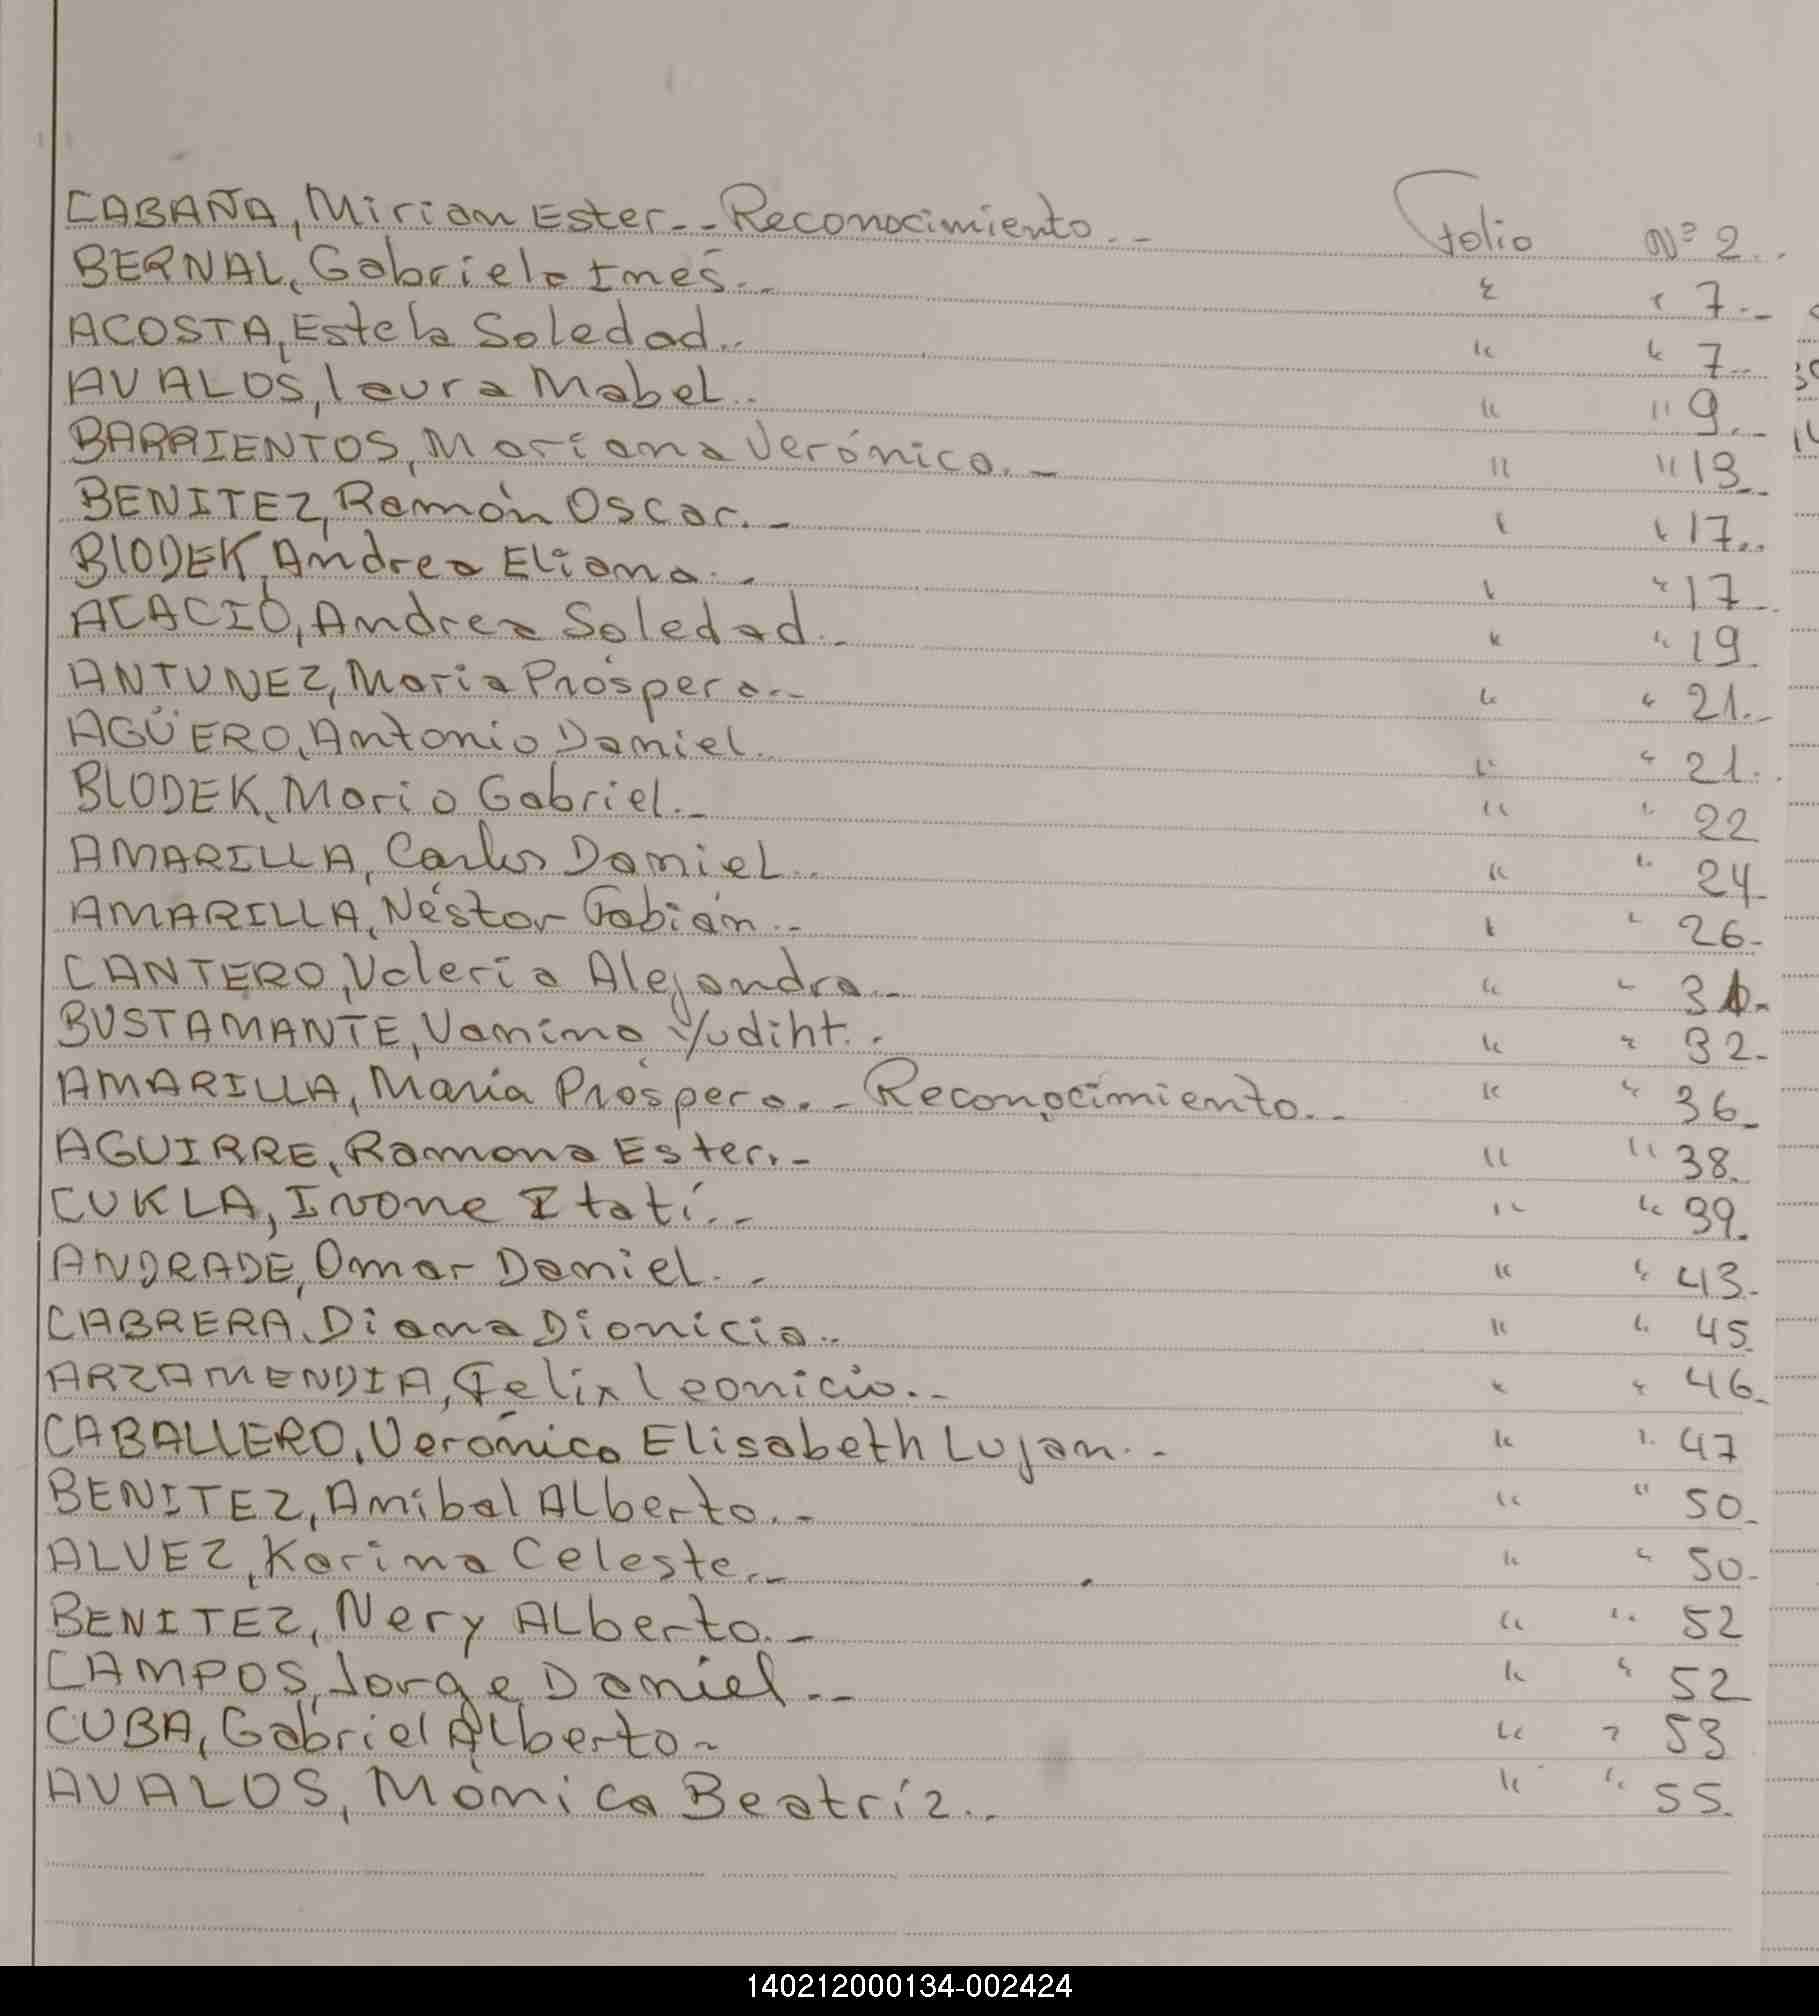 CABAÑA, Mirian Ester.-- Reconocimiento.-- Folio Nº 2.-
BERNAL, Gabriela Inés.-- " " 7.-
ACOSTA, Estela Soledad.-- " " 7.-
AVALOS, laura Mabel.- " " 9.-
BARRIENTOS, Mariana Verónica.- " " 13.-
BENITEZ, Ramón Oscar.- " " 17.-
BLODEK, Andrea Eliana.- " " 17.-
ACACIO, Andrea Soledad.- " " 19.
ANTUNEZ, Maria Próspera.-- " " 21.-
AGÜERO, Antonio Daniel.- " " 21.-
BLODEK, Mario Gabriel.- " " 22
AMARILLA, Carlos Daniel.- " " 24-
AMARILLA, Néstor Fabián.- " " 26.-
CANTERO, Valeria Alejandra.- " " 31.-
BUSTAMANTE, Vanina Yudiht.- " " 32.-
AMARILLA, María Próspera.-- Reconocimiento.-- " " 36.-
AGUIRRE, Ramona Ester.- " " 38.
CUKLA, Ivone Itatí.-- " " 39.
ANDRADE, Omar Daniel.-- " " 43.-
CABRERA, Diana Dionicia.- " " 45.
ARZAMENDIA, Felix leonicio.-- " " 46.-
CABALLERO, Verónica Elisabeth Lujan.-- " " 47
BENITEZ, Anibal Alberto.-- " " 50.-
ALVEZ, Karina Celeste.-- " " 50.-
BENITEZ, Nery Alberto.- " " 52
CAMPOS, Jorge Daniel.-- " " 52
CUBA, Gabriel Alberto- " " 53
AVALOS, Mónica Beatríz.-- " " 55.
140212000134-002424